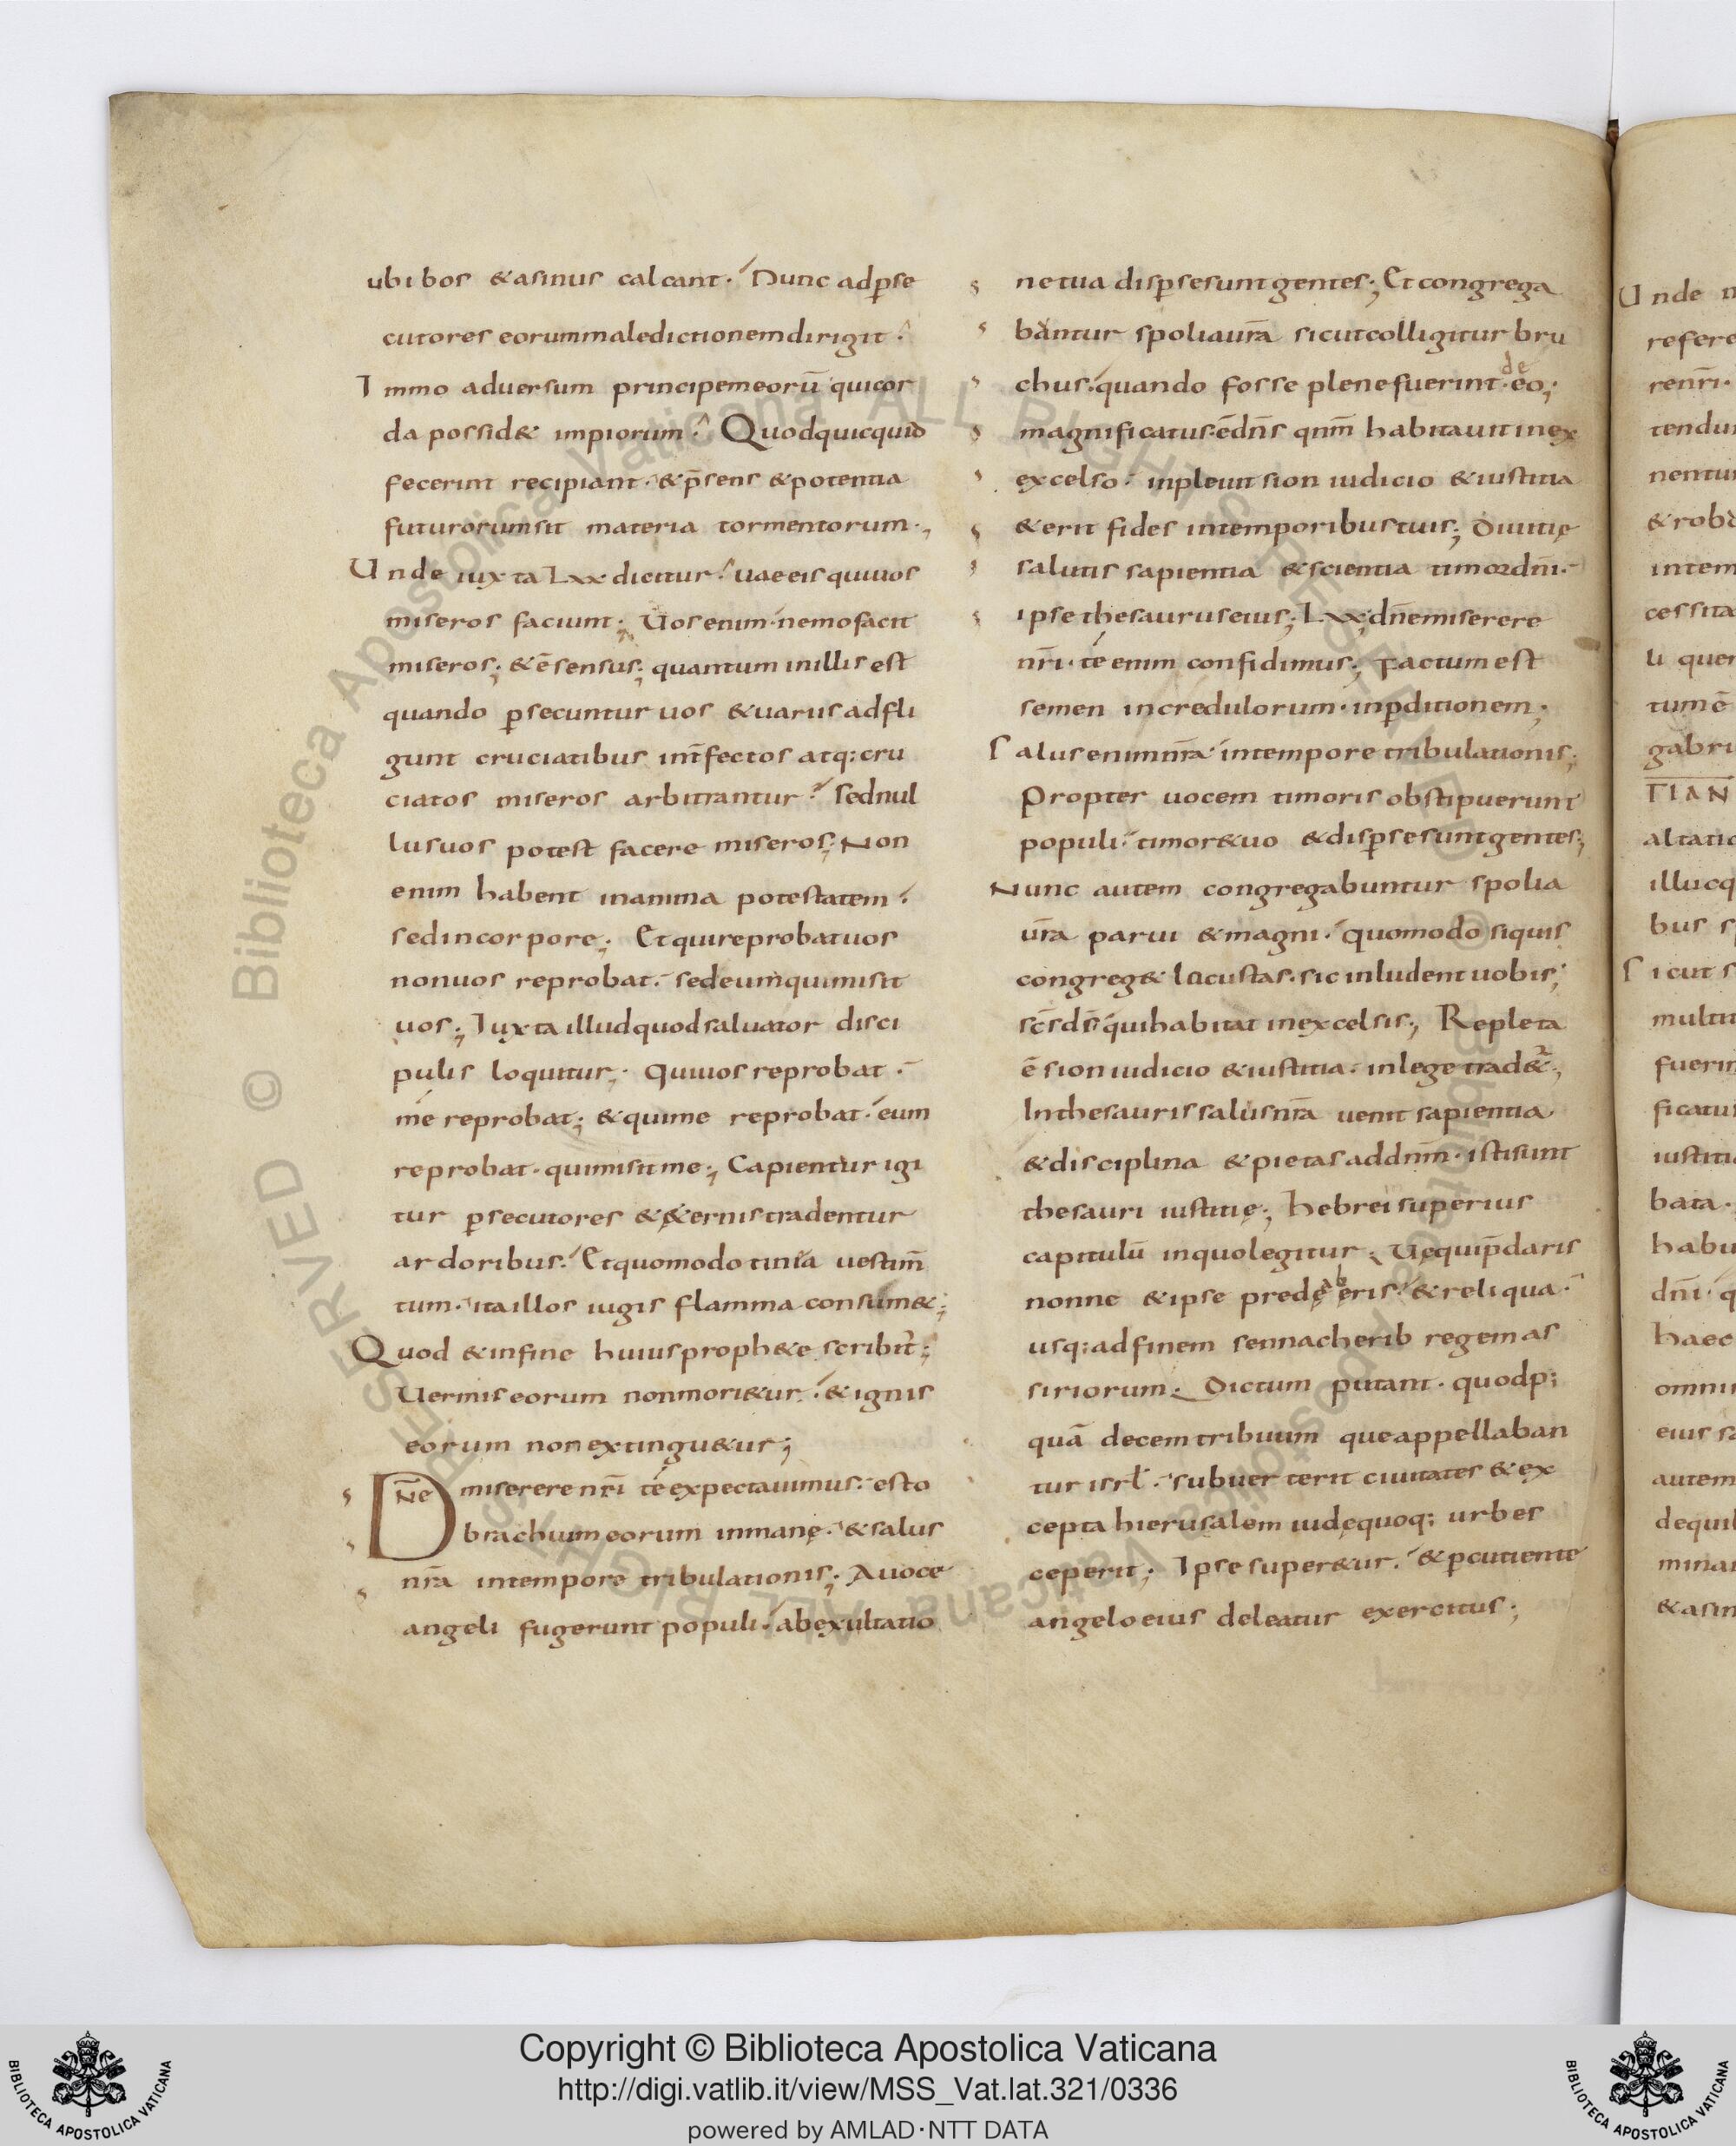 ubi bos &asinus calcant. Nunc adp̱se
cutores eorum maledictionem dirigit.
Immo aduersum principem eorū qui cor
da possid& impiorum. Quod quicquid
fecerint recipiant. &p̄sens &potentia
futurorum sit materia tormentorum.,
Unde iuxta Lxx dicitur. uae eis qui uos
miseros faciunt; Uos enim nemo facit
miseros; &ē sensus; quantum in illis est
quando p̱secuntur uos &uariis adfli
gunt cruciatibus int̄fectos atq: cru
ciatos miseros arbitrantur. sed nul
lus uos potest facere miseros; Non
enim habent in anima potestatem.
sed in corpore; Et qui reprobat uos
non uos reprobat. sed eum qui misit
uos; Iuxta illud quod saluator disci
pulis loquitur; Qui uos reprobat.
me reprobat; &qui me reprobat. eum
reprobat. qui misit me; Capientur igi
tur p̱secutores &&ernis tradentur
ardoribus. Et quomodo tinea uestim̄
tum. ita illos iugis flamma consum&;
Quod &in fine huius proph&e scribit̄;
Uermis eorum non mori&ur. &ignis
eorum non extingu&ur;
Dn̄e miserere nr̄i te expectauimus. esto
brachium eorum in mane. &salus
nr̄a in tempore tribulationis; A uoce
angeli fugerunt populi. ab exultatio
ne tua disp̱se sunt gentes; Et congrega
bantur spolia ur̄a sicut colligitur bru
chus. quando fosse plene fuerint. de eo;
magnificatus ē dn̄s qnm̄ habitauit in ex
excelso. inpleuit sion iudicio &iustitia
&erit fides in temporibus tuis; Diuitię
salutis sapientia &scientia timor dn̄i.
ipse thesaurus eius; Lxx; dn̄e miserere
nr̄i. te enim confidimus; Factum est
semen incredulorum. in p̱ditionem;
Salus enim nr̄a in tempore tribulationis;
Propter uocem timoris obstipuerunt
populi. timor& uo &disp̱se sunt gentes;
Nunc autem congregabuntur spolia
ur̄a parui &magni. quomodo siquis
congreg& locustas. sic inludent uobis;
sc̄s ds̄ qui habitat in excelsis; Repleta
ē sion iudicio &iustitia. in lege trad&ur;
In thesauris salus nr̄a uenit sapientia
&disciplina &pietas ad dnm̄. isti sunt
thesauri iustitię; Hebrei superius
capitulū in quo legitur; Uę qui p̄daris
nonne &ipse predaberis. &reliqua.
usq: ad finem sennacherib regem as
siriorum. Dictum putant. quod p;
quā decem tribuum que appellaban
tur isrł. subuerterit ciuitates &ex
cepta hierusalem iudę quoq; urbes
ceperit; Ipse super&ur. &p̱cutiente
angelo eius deleatur exercitus;
Unde
refere
renr̄i.
tendun
nentur
intem
cessita
li quer
tum ē
gabri
TIAN
altatio
illuc q
bus sp
Sicut s
multit
fuerin
ficatus
iustiti
baia.
habu
dn̄i. q
haec
omni
eius sa
autem
de quib
minar
&asin
© Biblioteca Apostolica Vaticana ALL RIGHTS RESERVED
Copyright © Biblioteca Apostolica Vaticana
http://digi.vatlib.it/view/MSS_Vat.lat.321/0336
powered by AMLAD·NTT DATA
BIBLIOTECA APOSTOLICA VATICANA
BIBLIOTECA APOSTOLICA VATICANA